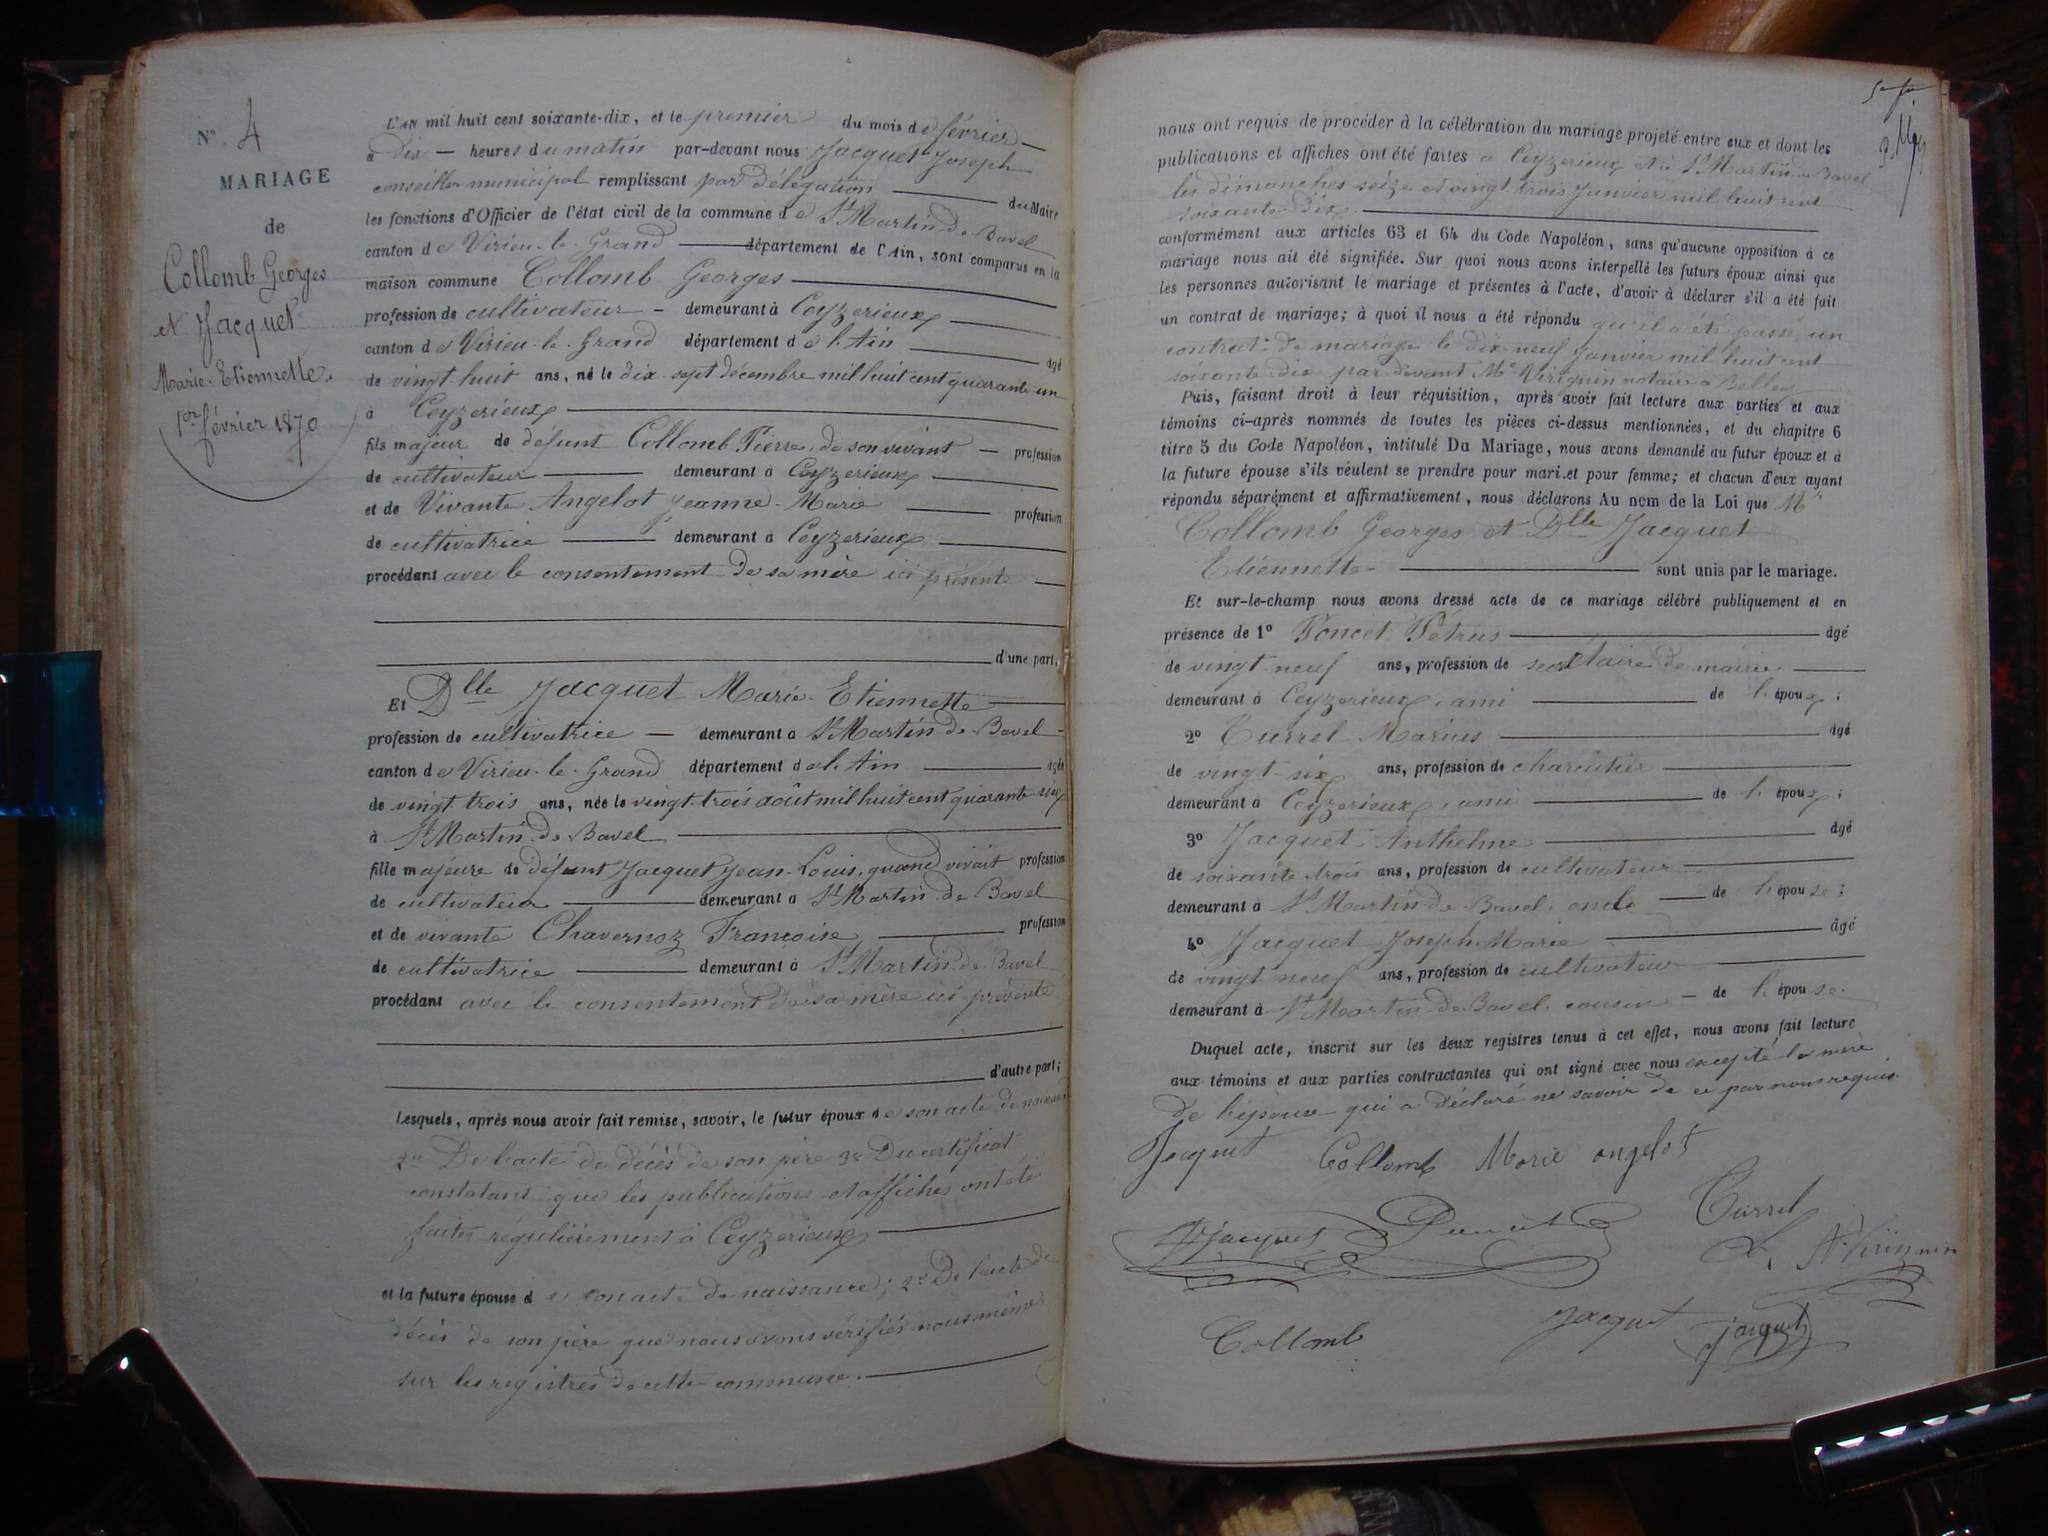 N° 4
MARIAGE
de
Collomb Georges
et Jacquet
Marie-Etiennette.
1er février 1870
L'AN mil huit cent soixante-dix, et le premier du mois de février
à dix heures du matin par-devant nous Jacquet Joseph
conseiller municipal remplissant par délégation du Maire
les fonctions d'Officier de l'état civil de la commune de St Martin-de-Bavel
canton de Virieu-le-Grand département de l'Ain, sont comparus en la
maison commune Collomb Georges
profession de cultivateur demeurant à Ceyzerieux
canton de Virieu-le-Grand département de l'Ain âgé
de vingt-huit ans, né le dix-sept décembre mil huit cent quarante-un
à Ceyzerieux
fils majeur de défunt Collomb Pierre, de son vivant profession
de cultivateur demeurant à Ceyzerieux
et de Vivante Angelot Jeanne-Marie profession
de cultivatrice demeurant à Ceyzerieux
procédant avec le consentement de sa mère ici présente
d'une part;
Et Dlle Jacquet Marie-Etiennette
profession de cultivatrice demeurant à St Martin-de-Bavel
canton de Virieu-le-Grand département de l'Ain âgée
de vingt-trois ans, née le vingt-trois août mil huit cent quarante-six
à St Martin-de-Bavel
fille majeure de défunt Jacquet Jean-Louis, quand vivait profession
de cultivateur demeurant à St Martin-de-Bavel
et de vivante Chavernoz Françoise profession
de cultivatrice demeurant à St Martin-de-Bavel
procédant avec le consentement de sa mère ici présente
d'autre part;
Lesquels, après nous avoir fait remise, savoir, le futur époux de son acte de naissance
2° De l'acte de décès de son père 3° Du certificat
constatant que les publications et affiches ont été
faites régulièrement à Ceyzerieux
et la future épouse de son acte de naissance; 2° De l'acte de
décès de son père que nous avons vérifiés nous même
sur les registres de cette commune.
nous ont requis de procéder à la célébration du mariage projeté entre eux et dont les
publications et affiches ont été faites à Ceyzerieux et à St Martin-de-Bavel
les dimanches seize et vingt-trois Janvier mil huit cent
soixante-dix
conformément aux articles 63 et 64 du Code Napoléon, sans qu'aucune opposition à ce
mariage nous ait été signifiée. Sur quoi nous avons interpellé les futurs époux ainsi que
les personnes autorisant le mariage et présentes à l'acte, d'avoir à déclarer s'il a été fait
un contrat de mariage; à quoi il nous a été répondu qu'il a été passé un
contrat de mariage le dix-neuf Janvier mil huit cent
soixante-dix par devant Me Virignin notaire à Belley
Puis, faisant droit à leur réquisition, après avoir fait lecture aux parties et aux
témoins ci-après nommés de toutes les pièces ci-dessus mentionnées, et du chapitre 6
titre 5 du Code Napoléon, intitulé Du Mariage, nous avons demandé au futur époux et à
la future épouse s'ils veulent se prendre pour mari et pour femme; et chacun d'eux ayant
répondu séparément et affirmativement, nous déclarons Au nom de la Loi que Mr
Collomb Georges et Dlle Jacquet
Etiennette sont unis par le mariage.
Et sur-le-champ nous avons dressé acte de ce mariage célébré publiquement et en
présence de 1° Poncet Pétrus âgé
de vingt-neuf ans, profession de secrétaire de mairie
demeurant à Ceyzerieux, ami de l'époux;
2° Turrel Marius âgé
de vingt-six ans, profession de charcutier
demeurant à Ceyzerieux, ami de l'époux;
3° Jacquet Anthelme âgé
de soixante-trois ans, profession de cultivateur
demeurant à St Martin-de-Bavel, oncle de l'épouse;
4° Jacquet Joseph-Marie âgé
de vingt-neuf ans, profession de cultivateur
demeurant à St Martin-de-Bavel, cousin de l'épouse.
Duquel acte, inscrit sur les deux registres tenus à cet effet, nous avons fait lecture
aux témoins et aux parties contractantes qui ont signé avec nous excepté la mère
de l'épouse qui a déclaré ne savoir de ce par nous requis.
Jacquet Collomb Marie angelot
Jacquet Poncet Turrel
Virignin
Collomb Jacquet Jacquet